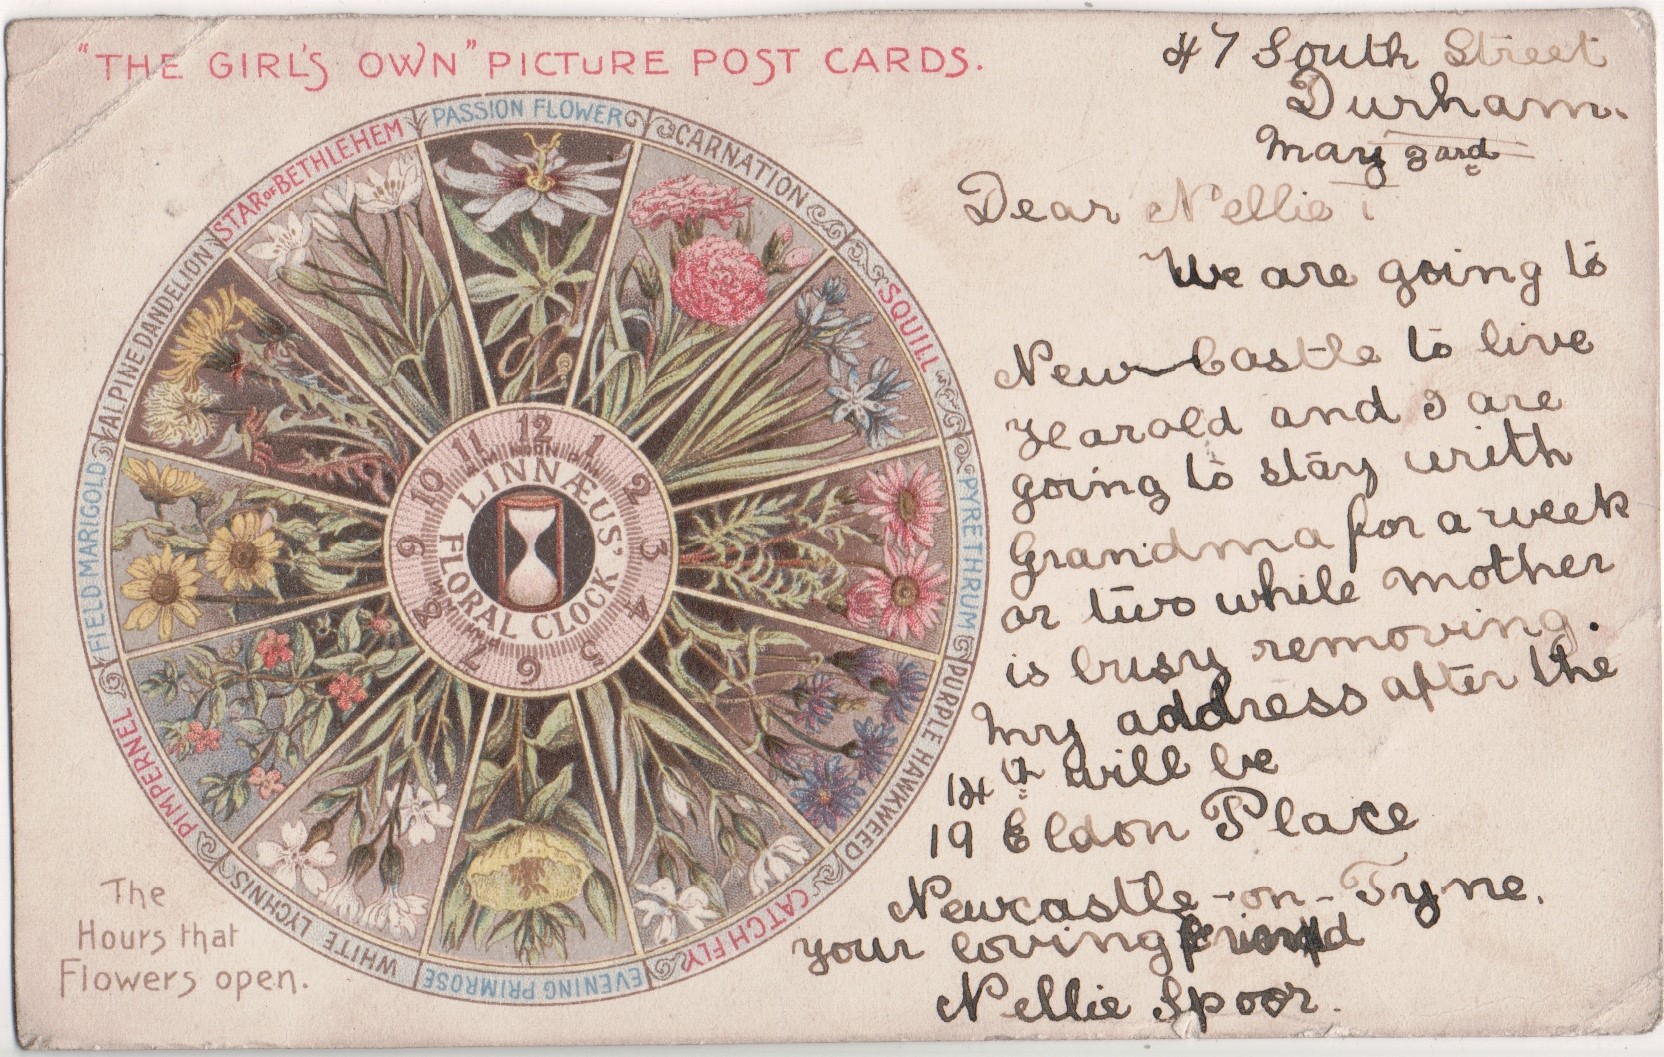 "THE GIRL'S OWN" PICTURE POST CARDS.
PASSION FLOWER
CARNATION
SQUILL
PYRETHRUM
PURPLE HAWKWEED
CATCH FLY
EVENING PRIMROSE
WHITE LYCHNIS
PIMPERNEL
FIELD MARIGOLD
ALPINE DANDELION
STAR OF BETHLEHEM
12
1
2
3
4
5
6
7
8
9
10
11
NOON
LINNÆUS'
FLORAL CLOCK
The
Hours that
Flowers open.
47 South Street
Durham.
May
Dear Nellie
We are going to
New-Castle to live
Harold and I are
going to stay with
Grandma for a week
or two while mother
is busy removing.
My address after the
14th will be
19 Eldon Place
Newcastle-on-Tyne.
your loving friend
Nellie Spoor.